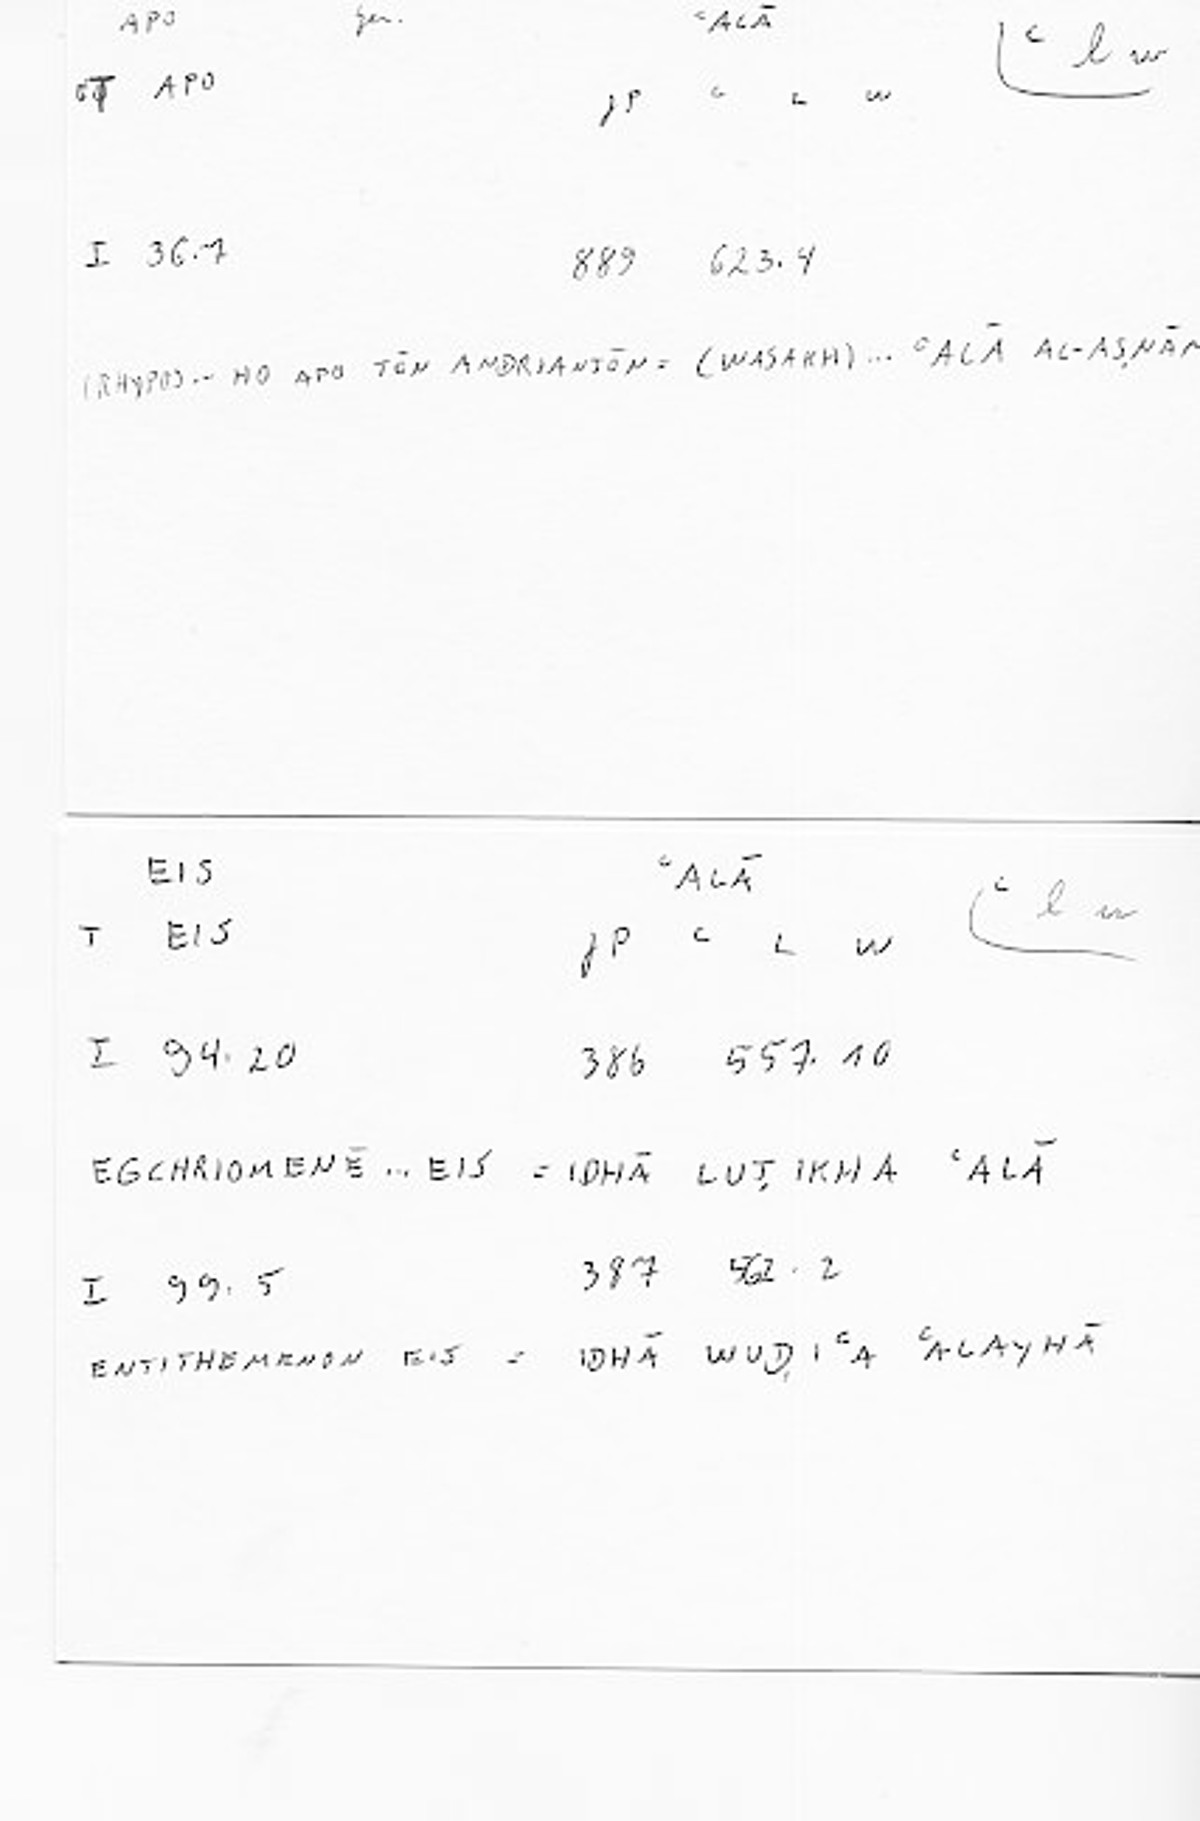 APO gen. ʿALĀ ʿlw
GT APO jP ʿ L W
I 36.7 889 623.4
(RHYPOS) .. HO APO TŌN ANDRIANTŌN = (WASAKH) ... ʿALĀ AL-AṢNĀM
EIS ʿALĀ ʿlw
T EIS jP ʿ L W
I 94.20 386 557.10
EGCHRIOMENĒ ... EIS = IDHĀ LUṬIKHA ʿALĀ
I 99.5 387 562.2
ENTITHEMENON EIS = IDHĀ WUḌIʿA ʿALAYHĀ